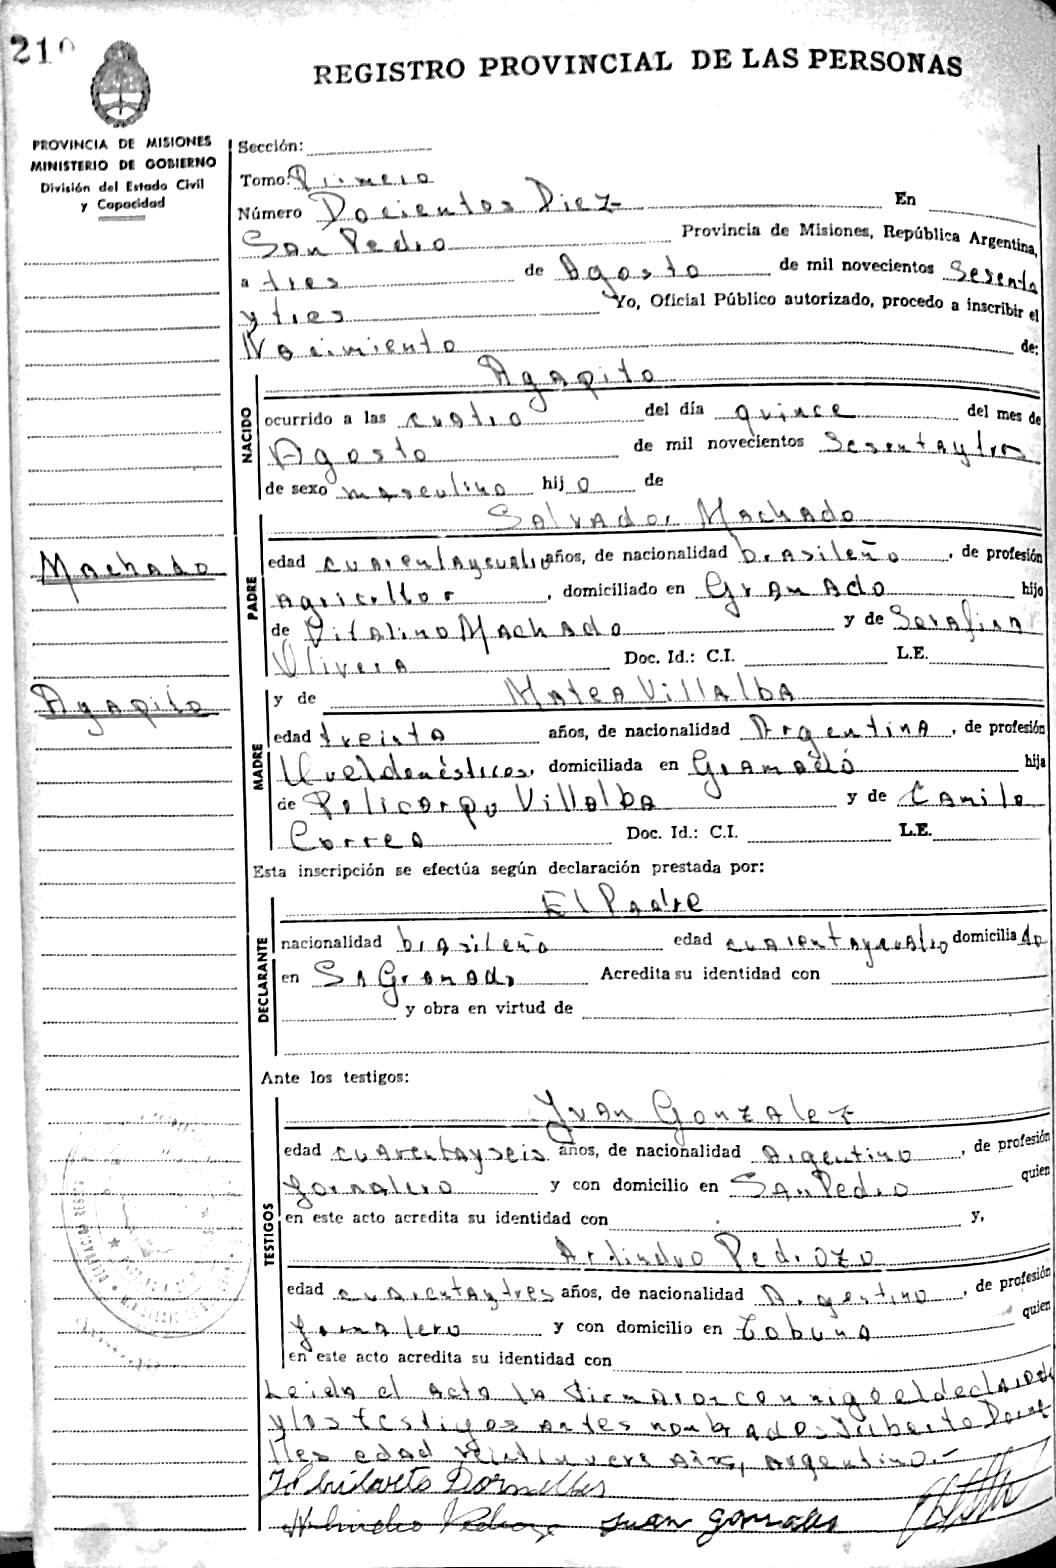 210
REGISTRO PROVINCIAL DE LAS PERSONAS
PROVINCIA DE MISIONES
MINISTERIO DE GOBIERNO
División del Estado Civil
y Capacidad
Sección:
Tomo: Primero
Número Docientos Diez En
San Pedro Provincia de Misiones, República Argentina,
a tres de Agosto de mil novecientos Sesenta
y tres Yo, Oficial Público autorizado, procedo a inscribir el
Nacimiento de:
NACIDO
Agapito
ocurrido a las cuatro del día quince del mes de
Agosto de mil novecientos Sesentaytres
de sexo masculino hijo de
Machado
Agapito
PADRE
Salvador Machado
edad cuarentaycuatro años, de nacionalidad brasileño, de profesión
Agricultor, domiciliado en Gramado hijo
de Vitalino Machado y de Serafina
Olivera Doc. Id.: C.I. L.E.
MADRE
y de Matea Villalba
edad treinta años, de nacionalidad Argentina, de profesión
domésticos, domiciliada en Gramado hija
de Policarpo Villalba y de Camila
Correa Doc. Id.: C.I. L.E.
Esta inscripción se efectúa según declaración prestada por:
DECLARANTE
El Padre
nacionalidad brasileño edad cuarentaycuatro domiciliado
en Gramado Acredita su identidad con
y obra en virtud de
Ante los testigos:
TESTIGOS
Juan Gonzalez
edad cuarentayseis años, de nacionalidad Argentino, de profesión
Jornalero y con domicilio en San Pedro quien
en este acto acredita su identidad con y,
Pedrozo
edad cuarentaytres años, de nacionalidad Argentino, de profesión
Jornalero y con domicilio en Tobuna quien
en este acto acredita su identidad con
Leida el acta la firmaron conmigo el declarante
y los testigos antes nombrados
edad años, argentino.-
Juan Gonzales